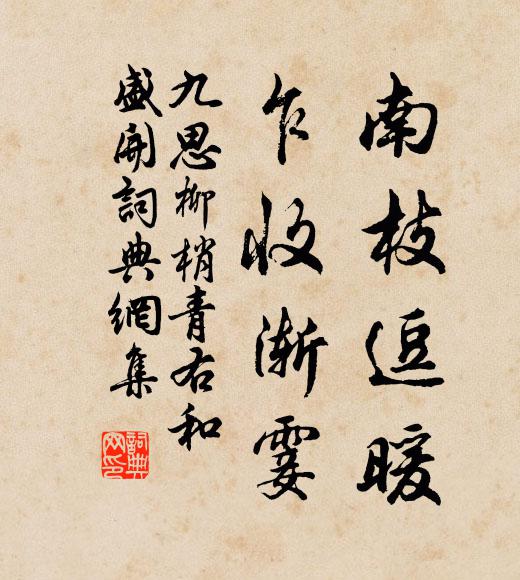 南枝逗暖
乍收渐霎
九思柳梢青右和
盛開詞典網集
詞典
网印